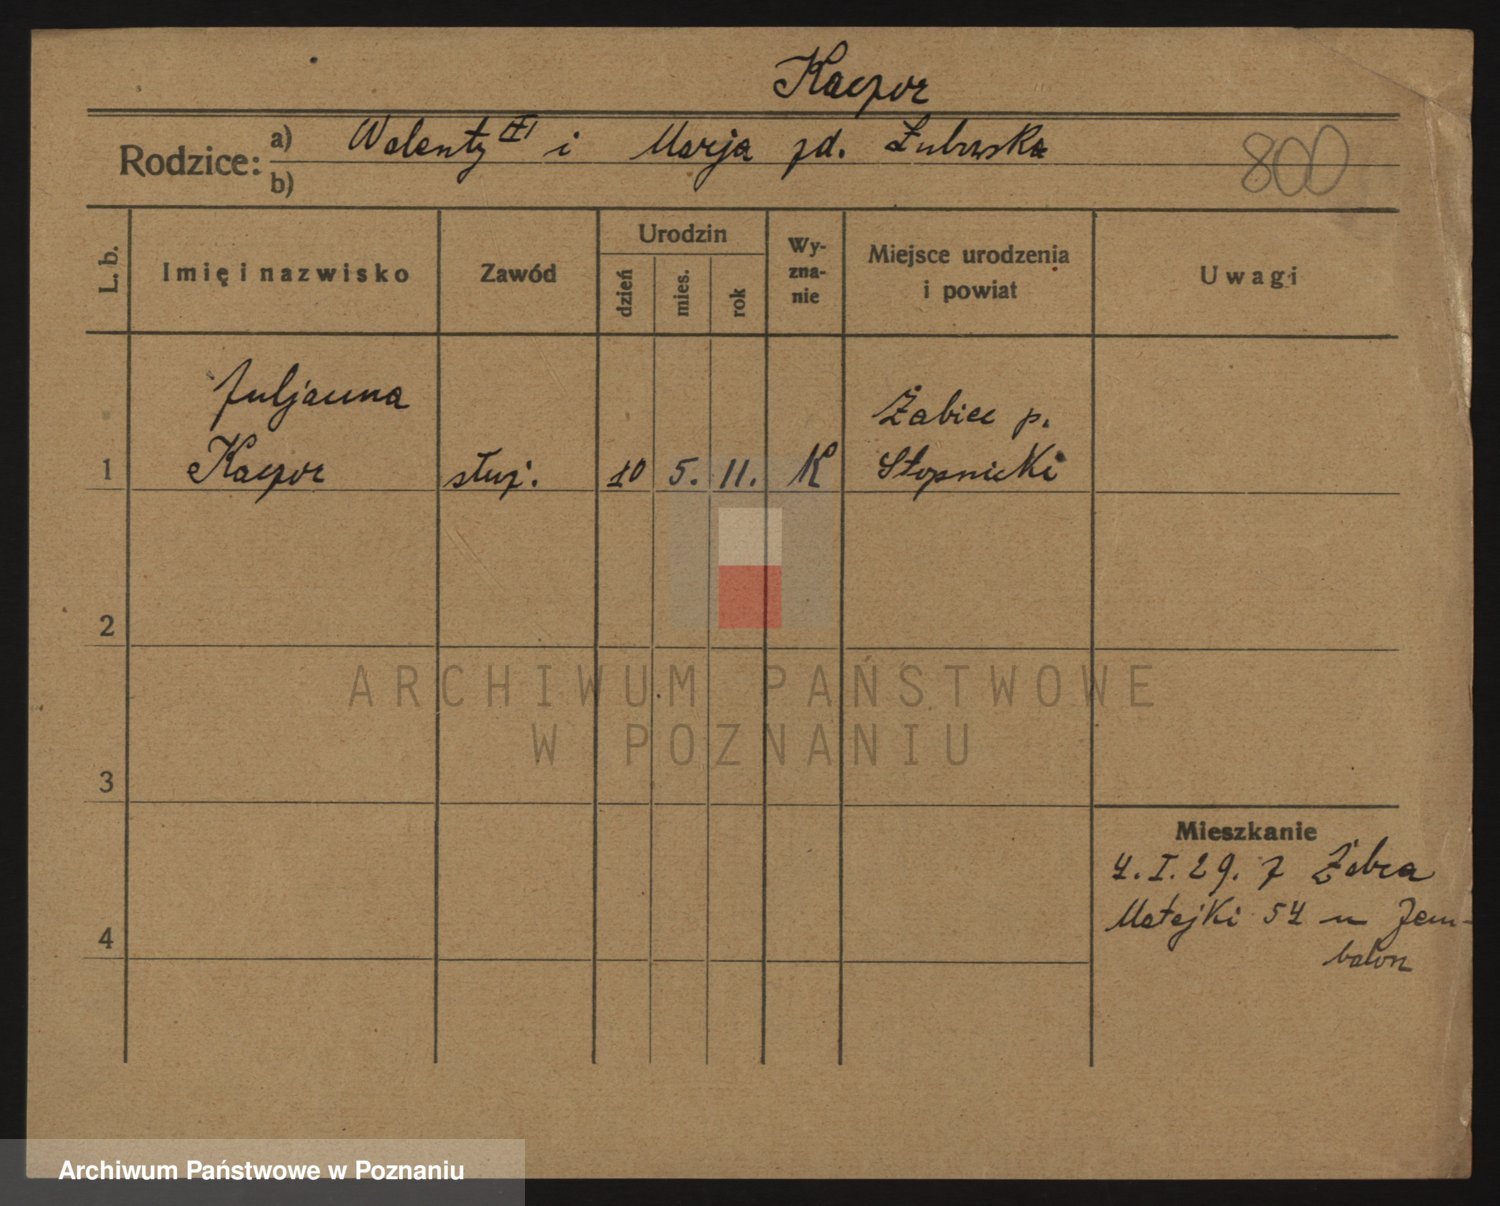 Kacpor
Rodzice: a) Walenty VI i Marja zd. Łubowska
b)
800
L. b.
Imię i nazwisko
Zawód
Urodzin
dzień
mies.
rok
Wy-
zna-
nie
Miejsce urodzenia
i powiat
Uwagi
Juljanna
Żabiec p.
1 Kacpor służ. 10 5. 11. K Stopnicki
2
ARCHIWUM PAŃSTWOWE
W POZNANIU
3
Mieszkanie
4. I. 29. z Żabca
Matejki 54 u Jem-
4
balon
Archiwum Państwowe w Poznaniu